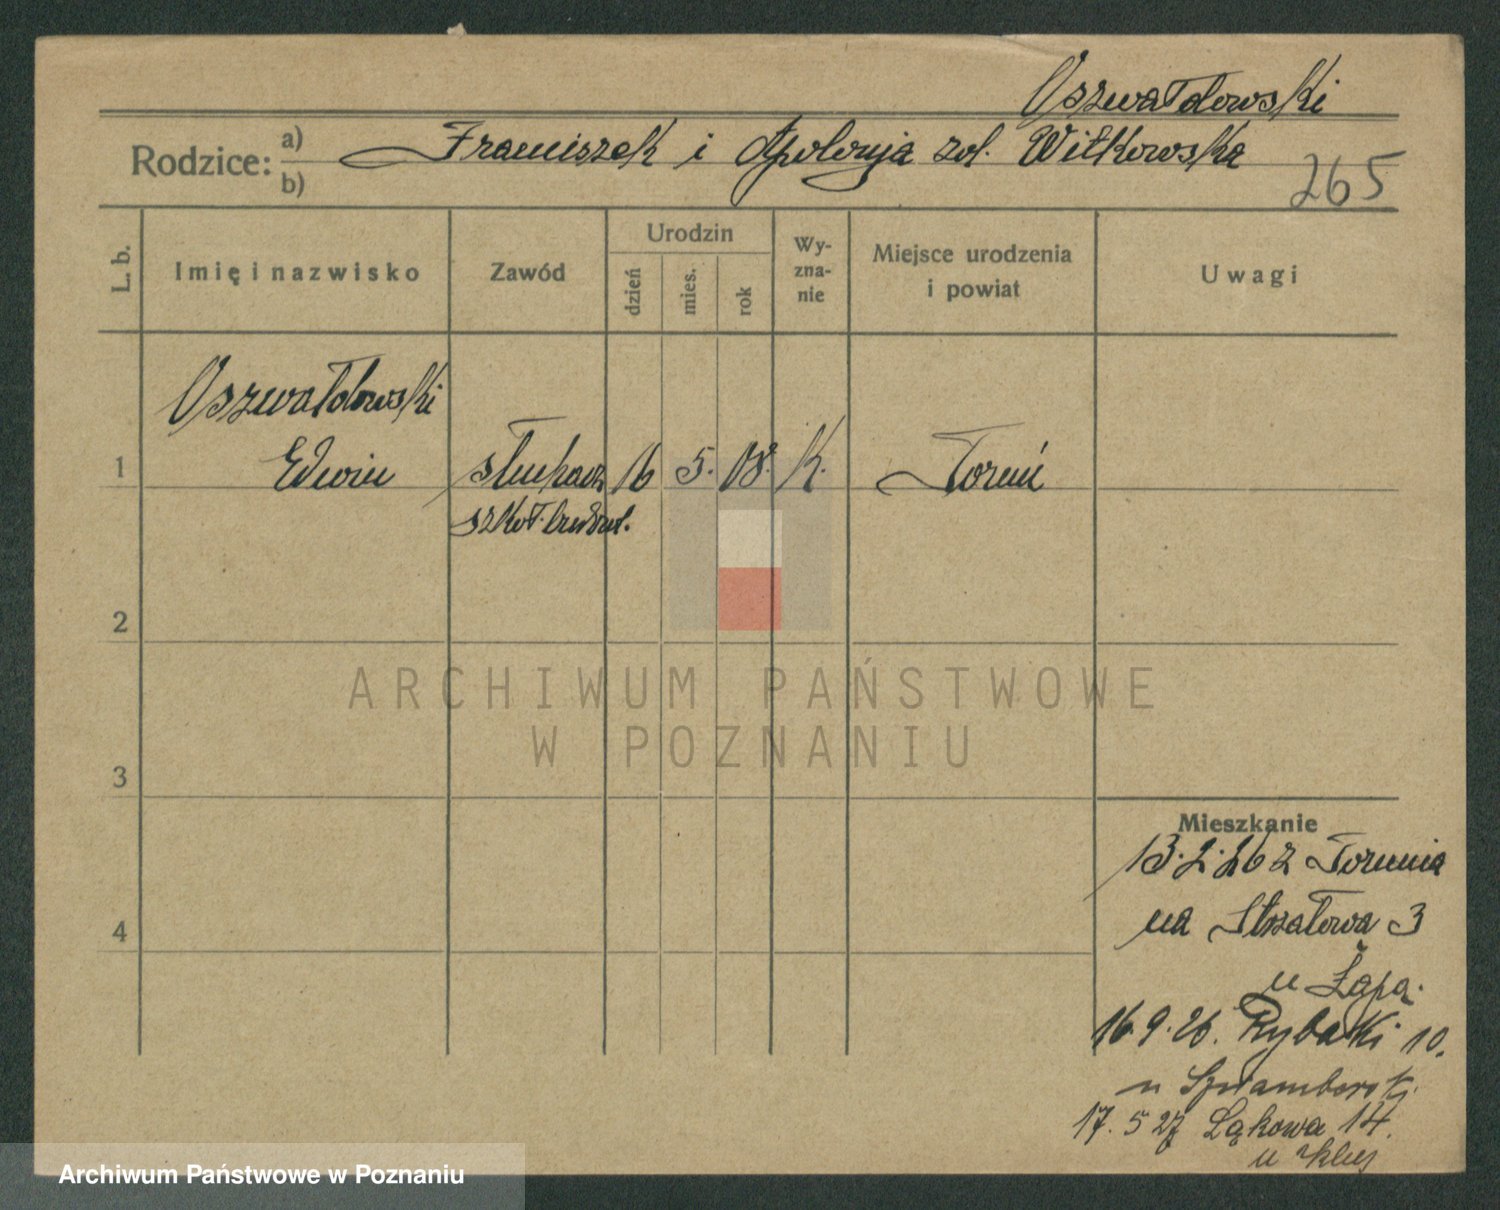 Oszwałdowski
Rodzice: a) Franciszek i Apolonja zd. Witkowska
b)
265
L. b.
Imię i nazwisko
Zawód
Urodzin
dzień
mies.
rok
Wy-
zna-
nie
Miejsce urodzenia
i powiat
Uwagi
Oszwałdowski
1 Edwin słuchacz 16 5. 08. K. Toruń
szkoł. budowl.
2
ARCHIWUM PAŃSTWOWE
W POZNANIU
3
Mieszkanie
13.2.26 z Torunia
4
na Strzałowa 3
u Łapa.
16.9.26. Rybaki 10.
u
17.5 27 Łąkowa 14.
u
Archiwum Państwowe w Poznaniu